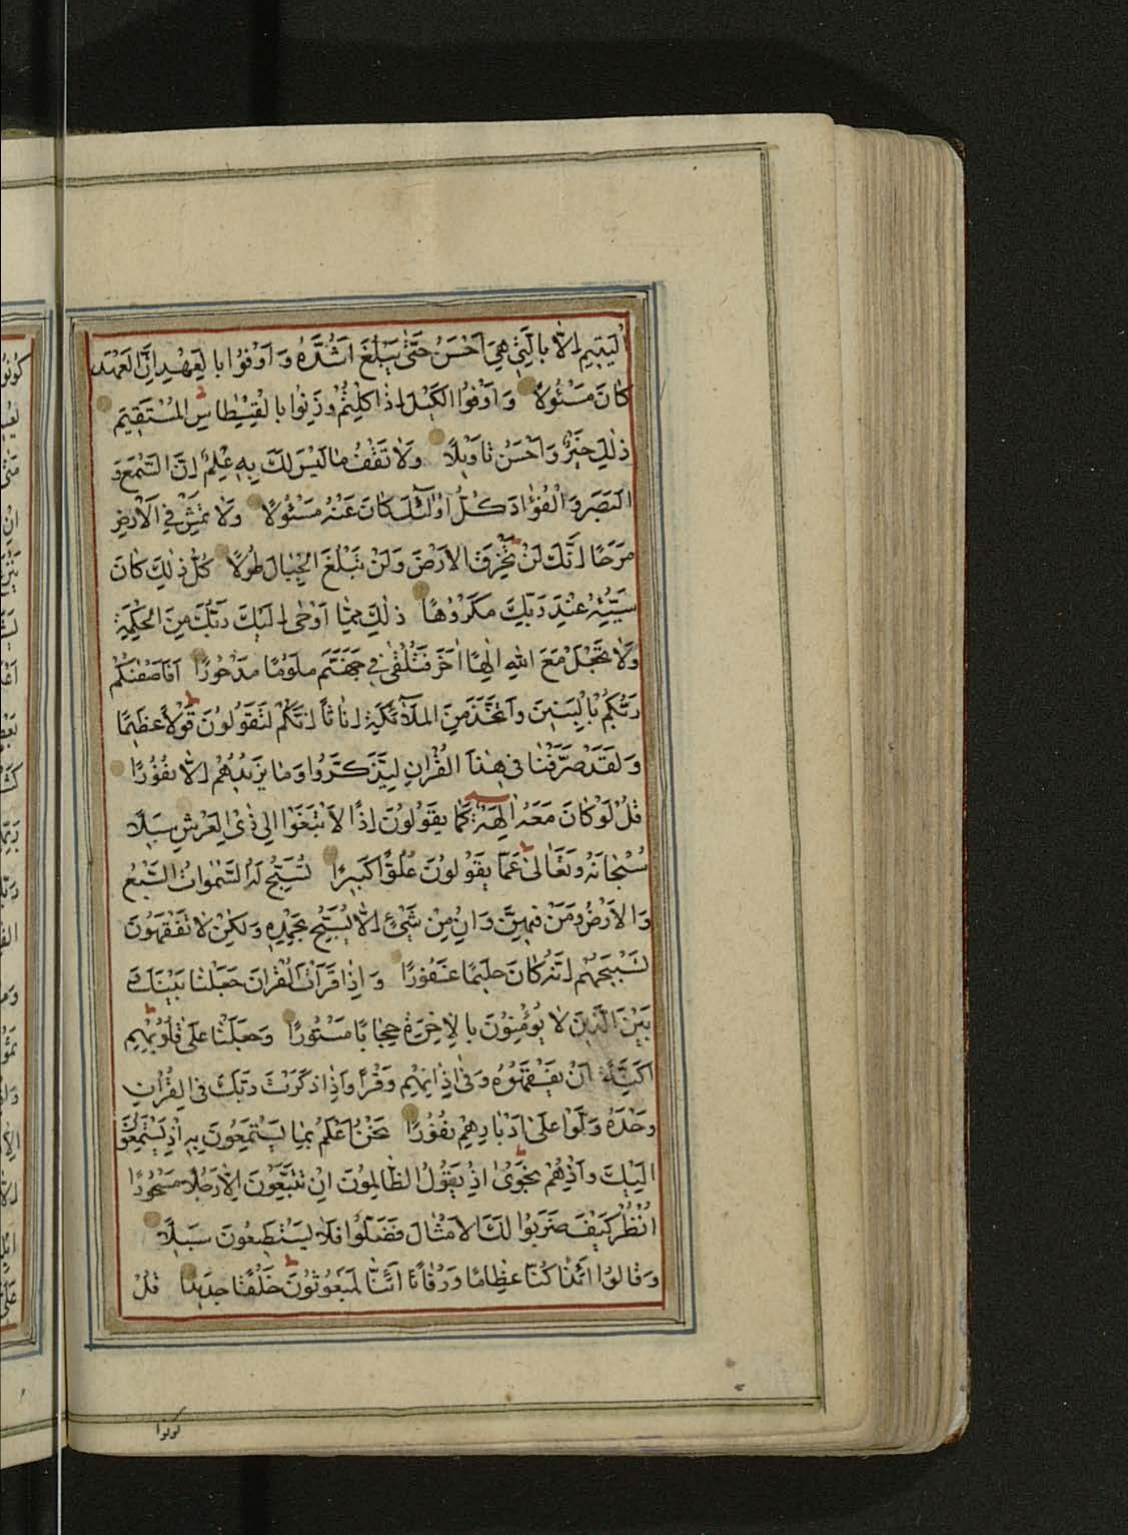 الْيَتِيمِ اِلَّا بِالَّتِي هِيَ اَحْسَنُ حَتّٰى يَبْلُغَ اَشُدَّهُ وَ اَوْفُوا بِالْعَهْدِ اِنَّ الْعَهْدَ
كَانَ مَسْئُولًا وَ اَوْفُوا الْكَيْلَ اِذَا كِلْتُمْ وَزِنُوا بِالْقِسْطَاسِ الْمُسْتَقِيمِ
ذٰلِكَ خَيْرٌ وَ اَحْسَنُ تَاْوِيلًا وَلَا تَقْفُ مَا لَيْسَ لَكَ بِهِ عِلْمٌ اِنَّ السَّمْعَ وَ
الْبَصَرَ وَالْفُؤَادَ كُلُّ اُولٰئِكَ كَانَ عَنْهُ مَسْئُولًا وَلَا تَمْشِ فِي الْاَرْضِ
مَرَحًا اِنَّكَ لَنْ تَخْرِقَ الْاَرْضَ وَلَنْ تَبْلُغَ الْجِبَالَ طُولًا كُلُّ ذٰلِكَ كَانَ
سَيِّئُهُ عِنْدَ رَبِّكَ مَكْرُوهًا ذٰلِكَ مِمَّا اَوْحٰى اِلَيْكَ رَبُّكَ مِنَ الْحِكْمَةِ
وَلَا تَجْعَلْ مَعَ اللّٰهِ اِلٰهًا اٰخَرَ فَتُلْقٰى فِي جَهَنَّمَ مَلُومًا مَدْحُورًا اَفَاَصْفٰيكُمْ
رَبُّكُمْ بِالْبَنِينَ وَاتَّخَذَ مِنَ الْمَلٰٓئِكَةِ اِنَاثًا اِنَّكُمْ لَتَقُولُونَ قَوْلًا عَظِيمًا
وَلَقَدْ صَرَّفْنَا فِي هٰذَا الْقُرْاٰنِ لِيَذَّكَّرُوا وَمَا يَزِيدُهُمْ اِلَّا نُفُورًا
قُلْ لَوْ كَانَ مَعَهُ اٰلِهَةٌ كَمَا يَقُولُونَ اِذًا لَابْتَغَوْا اِلٰى ذِي الْعَرْشِ سَبِيلًا
سُبْحَانَهُ وَتَعَالٰى عَمَّا يَقُولُونَ عُلُوًّا كَبِيرًا تُسَبِّحُ لَهُ السَّمٰوَاتُ السَّبْعُ
وَالْاَرْضُ وَمَنْ فِيهِنَّ وَاِنْ مِنْ شَيْءٍ اِلَّا يُسَبِّحُ بِحَمْدِهِ وَلٰكِنْ لَا تَفْقَهُونَ
تَسْبِيحَهُمْ اِنَّهُ كَانَ حَلِيمًا غَفُورًا وَ اِذَا قَرَاْتَ الْقُرْاٰنَ جَعَلْنَا بَيْنَكَ وَ
بَيْنَ الَّذِينَ لَا يُؤْمِنُونَ بِالْاٰخِرَةِ حِجَابًا مَسْتُورًا وَجَعَلْنَا عَلٰى قُلُوبِهِمْ
اَكِنَّةً اَنْ يَفْقَهُوهُ وَفِي اٰذَانِهِمْ وَقْرًا وَاِذَا ذَكَرْتَ رَبَّكَ فِي الْقُرْاٰنِ
وَحْدَهُ وَلَّوْا عَلٰى اَدْبَارِهِمْ نُفُورًا نَحْنُ اَعْلَمُ بِمَا يَسْتَمِعُونَ بِهِ اِذْ يَسْتَمِعُونَ
اِلَيْكَ وَ اِذْ هُمْ نَجْوٰى اِذْ يَقُولُ الظَّالِمُونَ اِنْ تَتَّبِعُونَ اِلَّا رَجُلًا مَسْحُورًا
اُنْظُرْ كَيْفَ ضَرَبُوا لَكَ الْاَمْثَالَ فَضَلُّوا فَلَا يَسْتَطِيعُونَ سَبِيلًا
وَقَالُوا اَئِذَا كُنَّا عِظَامًا وَرُفَاتًا اَئِنَّا لَمَبْعُوثُونَ خَلْقًا جَدِيدًا قُلْ
كونوا